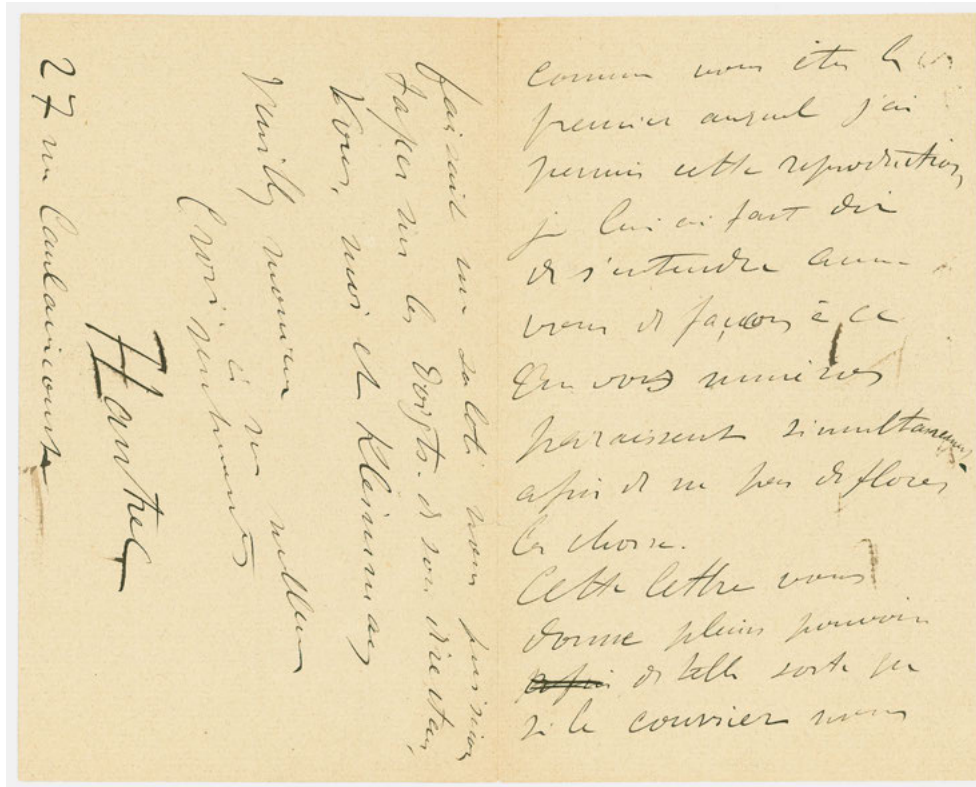 comme vous êtes le
premier auquel j'ai
permis cette reproduction
je lui ai fait dire
de s'entendre avec
vous de façon à ce
que vos numéros
paraissent simultanément
afin de ne pas déflorer
les choses.
Cette lettre vous
donne pleins pouvoirs
de telle sorte que
si le courrier nous
faisait une saloti nous puissions
taper sur les doigts de son directeur,
Vous, moi et Kleinmann
Veuillez monsieur
à mes meilleurs
sentiments
HTLautrec
27 rue Caulaincourt